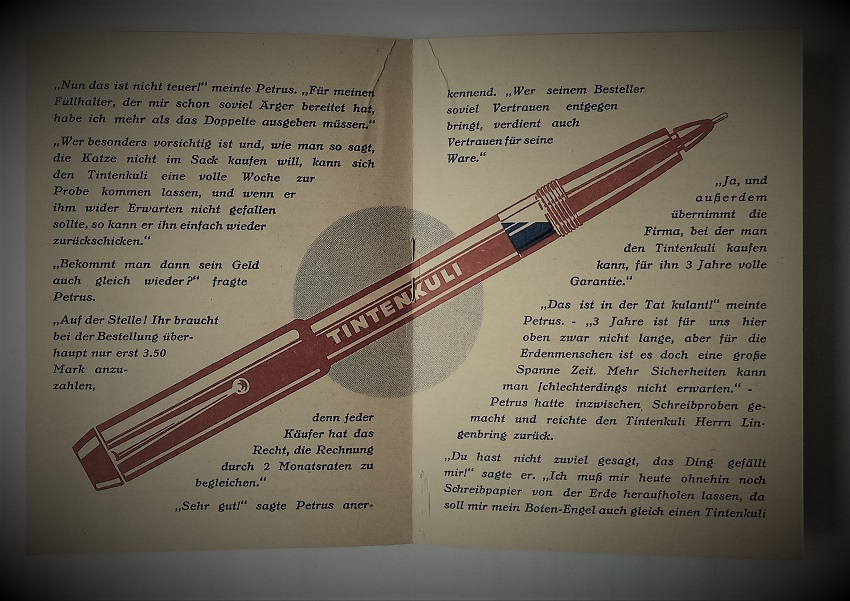 „Nun das ist nicht teuer!“ meinte Petrus. „Für meinen
Füllhalter, der mir schon soviel Ärger bereitet hat,
habe ich mehr als das Doppelte ausgeben müssen.“
„Wer besonders vorsichtig ist und, wie man so sagt,
die Katze nicht im Sack kaufen will, kann sich
den Tintenkuli eine volle Woche zur
Probe kommen lassen, und wenn er
ihm wider Erwarten nicht gefallen
sollte, so kann er ihn einfach wieder
zurückschicken.“
„Bekommt man dann sein Geld
auch gleich wieder?“ fragte
Petrus.
„Auf der Stelle! Ihr braucht
bei der Bestellung über-
haupt nur erst 3.50
Mark anzu-
zahlen,
denn jeder
Käufer hat das
Recht, die Rechnung
durch 2 Monatsraten zu
begleichen.“
„Sehr gut!“ sagte Petrus aner-
TINTENKULI
kennend. „Wer seinem Besteller
soviel Vertrauen entgegen
bringt, verdient auch
Vertrauen für seine
Ware.“
„Ja, und
außerdem
übernimmt die
Firma, bei der man
den Tintenkuli kaufen
kann, für ihn 3 Jahre volle
Garantie.“
„Das ist in der Tat kulant!“ meinte
Petrus. - „3 Jahre ist für uns hier
oben zwar nicht lange, aber für die
Erdenmenschen ist es doch eine große
Spanne Zeit. Mehr Sicherheiten kann
man schlechterdings nicht erwarten.“ -
Petrus hatte inzwischen Schreibproben ge-
macht und reichte den Tintenkuli Herrn Lin-
genbring zurück.
„Du hast nicht zuviel gesagt, das Ding gefällt
mir!“ sagte er. „Ich muß mir heute ohnehin noch
Schreibpapier von der Erde heraufholen lassen, da
soll mir mein Boten-Engel auch gleich einen Tintenkuli